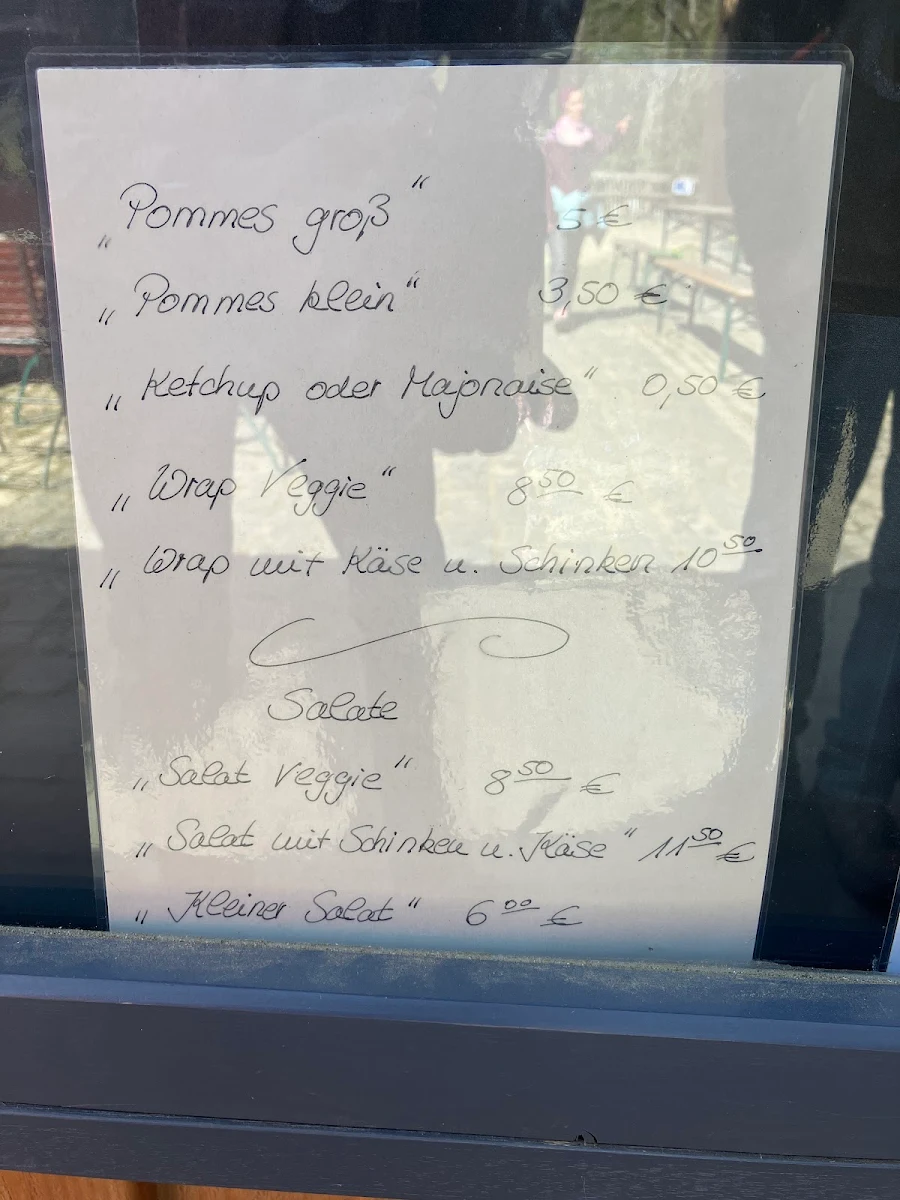 „Pommes groß“ 5 €
„Pommes klein“ 3,50 €
„Ketchup oder Majonaise“ 0,50 €
„Wrap Veggie“ 8 50 €
„Wrap mit Käse u. Schinken 10 50
Salate
„Salat Veggie“ 8 50 €
„Salat mit Schinken u. Käse“ 11 50 €
„Kleiner Salat“ 6 00 €